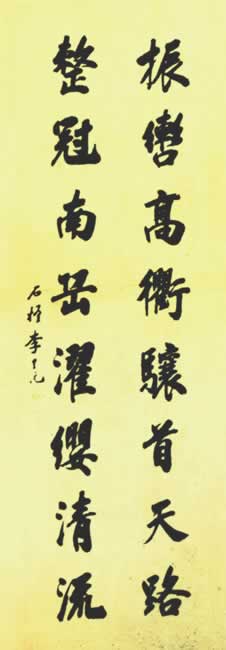 振轡高衢驤首天路
整冠南岳濯纓清流
石 李